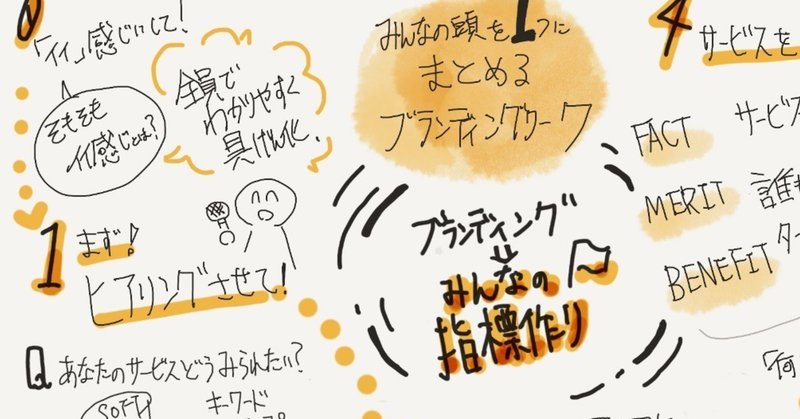 「イイ」感じにして!
そもそも
イイ感じとは?
全員で
わかりやすく
具げん化
1 まず!
ヒアリングさせて!
Q あなたのサービスどうみられたい?
SOFT
キーワード
みんなの頭を1つに
まとめる
ブランディングワーク
ブランディング
みんなの
指標作り
4 サービスを
FACT サービス
MERIT 誰
BENEFIT ター
「何